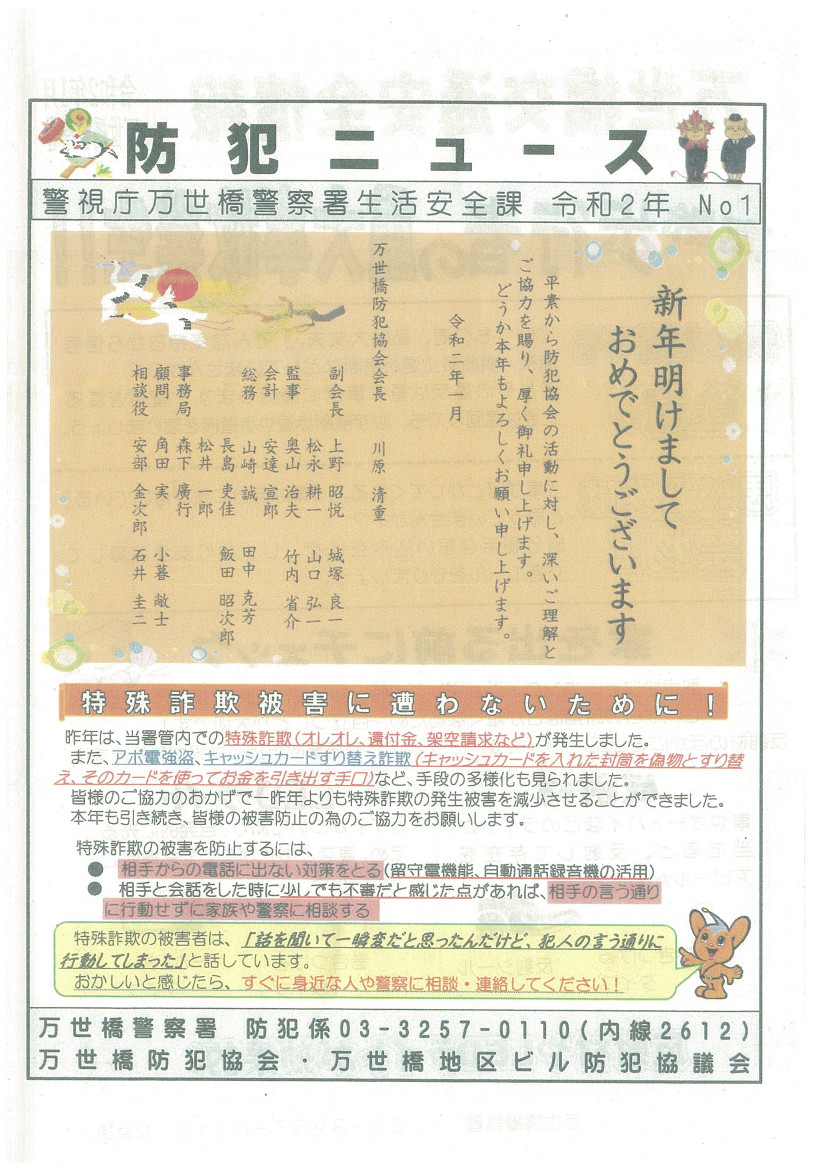 防犯ニュース
警視庁万世橋警察署生活安全課 令和2年 No1
新年明けまして
おめでとうございます
平素から防犯協会の活動に対し、深いご理解と
ご協力を賜り、厚く御礼申し上げます。
どうか本年もよろしくお願い申し上げます。
令和二年一月
万世橋防犯協会会長 川原 清重
副会長 上野 昭悦 城塚 良一
松永 耕一 山口 弘一
監事 奥山 治夫 竹内 省介
会計 安達 宣郎
総務 山崎 誠 田中 克芳
長島 吏佳 飯田 昭次郎
松井 一郎
事務局 森下 廣行
顧問 角田 実 小暮 敞士
相談役 安部 金次郎 石井 圭二
特殊詐欺被害に遭わないために!
昨年は、当署管内での特殊詐欺(オレオレ、還付金、架空請求など)が発生しました。
また、アポ電強盗、キャッシュカードすり替え詐欺(キャッシュカードを入れた封筒を偽物とすり替
え、そのカードを使ってお金を引き出す手口)など、手段の多様化も見られました。
皆様のご協力のおかげで一昨年よりも特殊詐欺の発生被害を減少させることができました。
本年も引き続き、皆様の被害防止の為のご協力をお願いします。
特殊詐欺の被害を防止するには、
● 相手からの電話に出ない対策をとる(留守電機能、自動通話録音機の活用)
● 相手と会話をした時に少しでも不審だと感じた点があれば、相手の言う通り
に行動せずに家族や警察に相談する
特殊詐欺の被害者は、「話を聞いて一瞬変だと思ったんだけど、犯人の言う通りに
行動してしまった」と話しています。
おかしいと感じたら、すぐに身近な人や警察に相談・連絡してください!
万世橋警察署 防犯係03-3257-0110(内線2612)
万世橋防犯協会・万世橋地区ビル防犯協議会